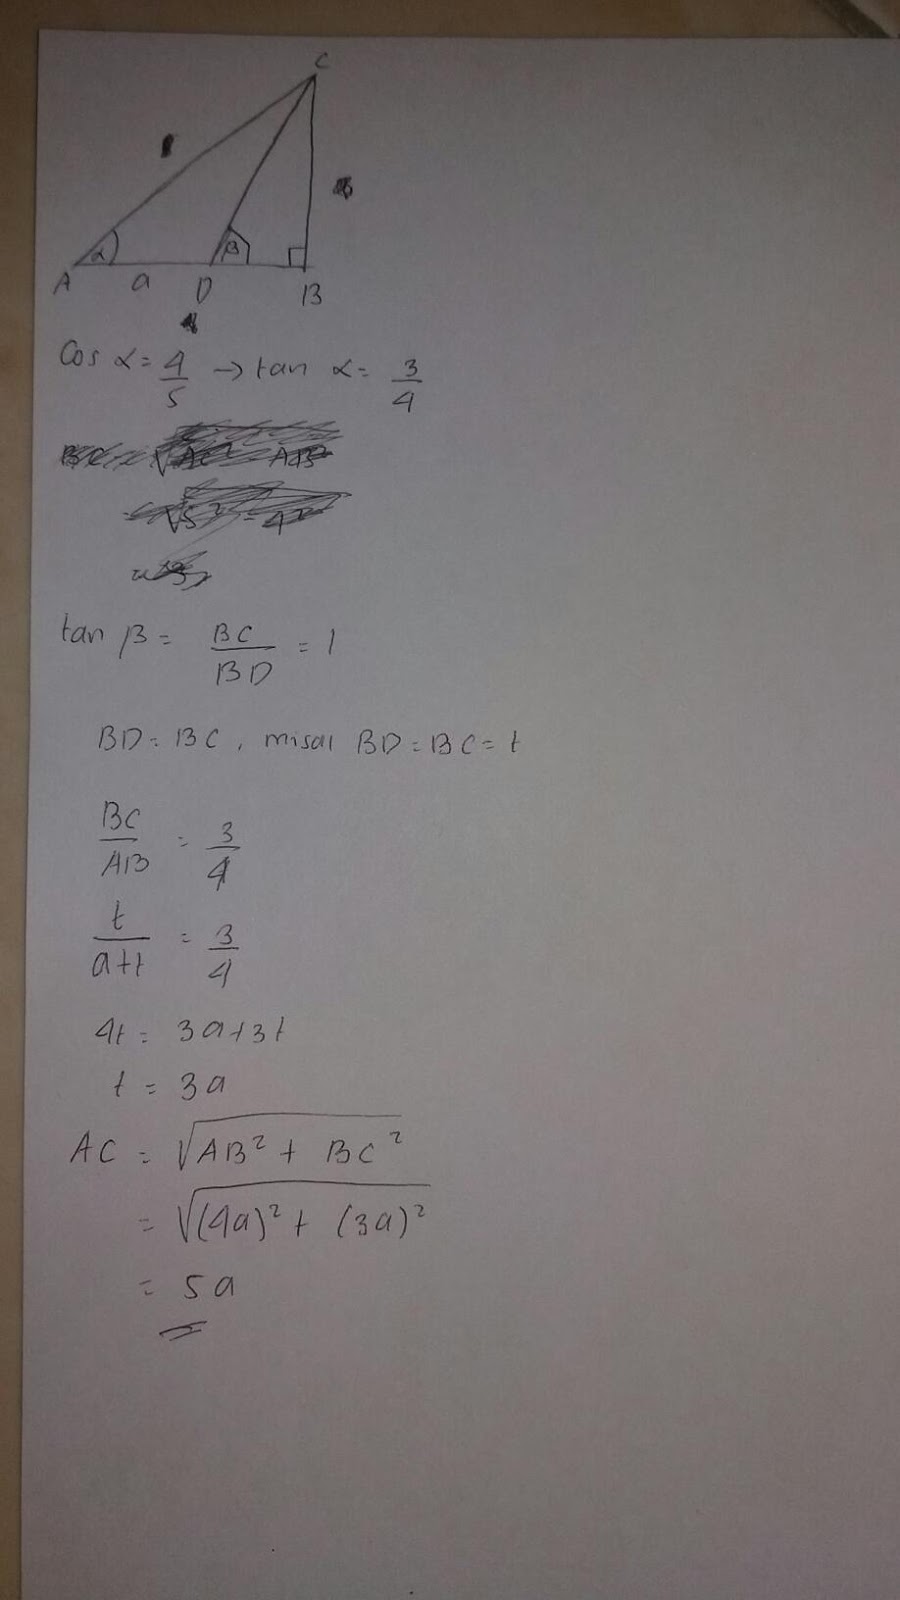 C
α
β
A a D B
cos α = 4/5 → tan α = 3/4
tan β = BC/BD = 1
BD = BC, misal BD = BC = t
BC/AB = 3/4
t/a+t = 3/4
4t = 3a+3t
t = 3a
AC = √AB² + BC²
= √(4a)² + (3a)²
= 5a